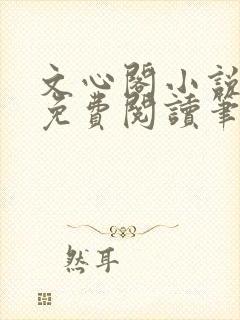 文心閣小說
免費閱讀筆
然耳